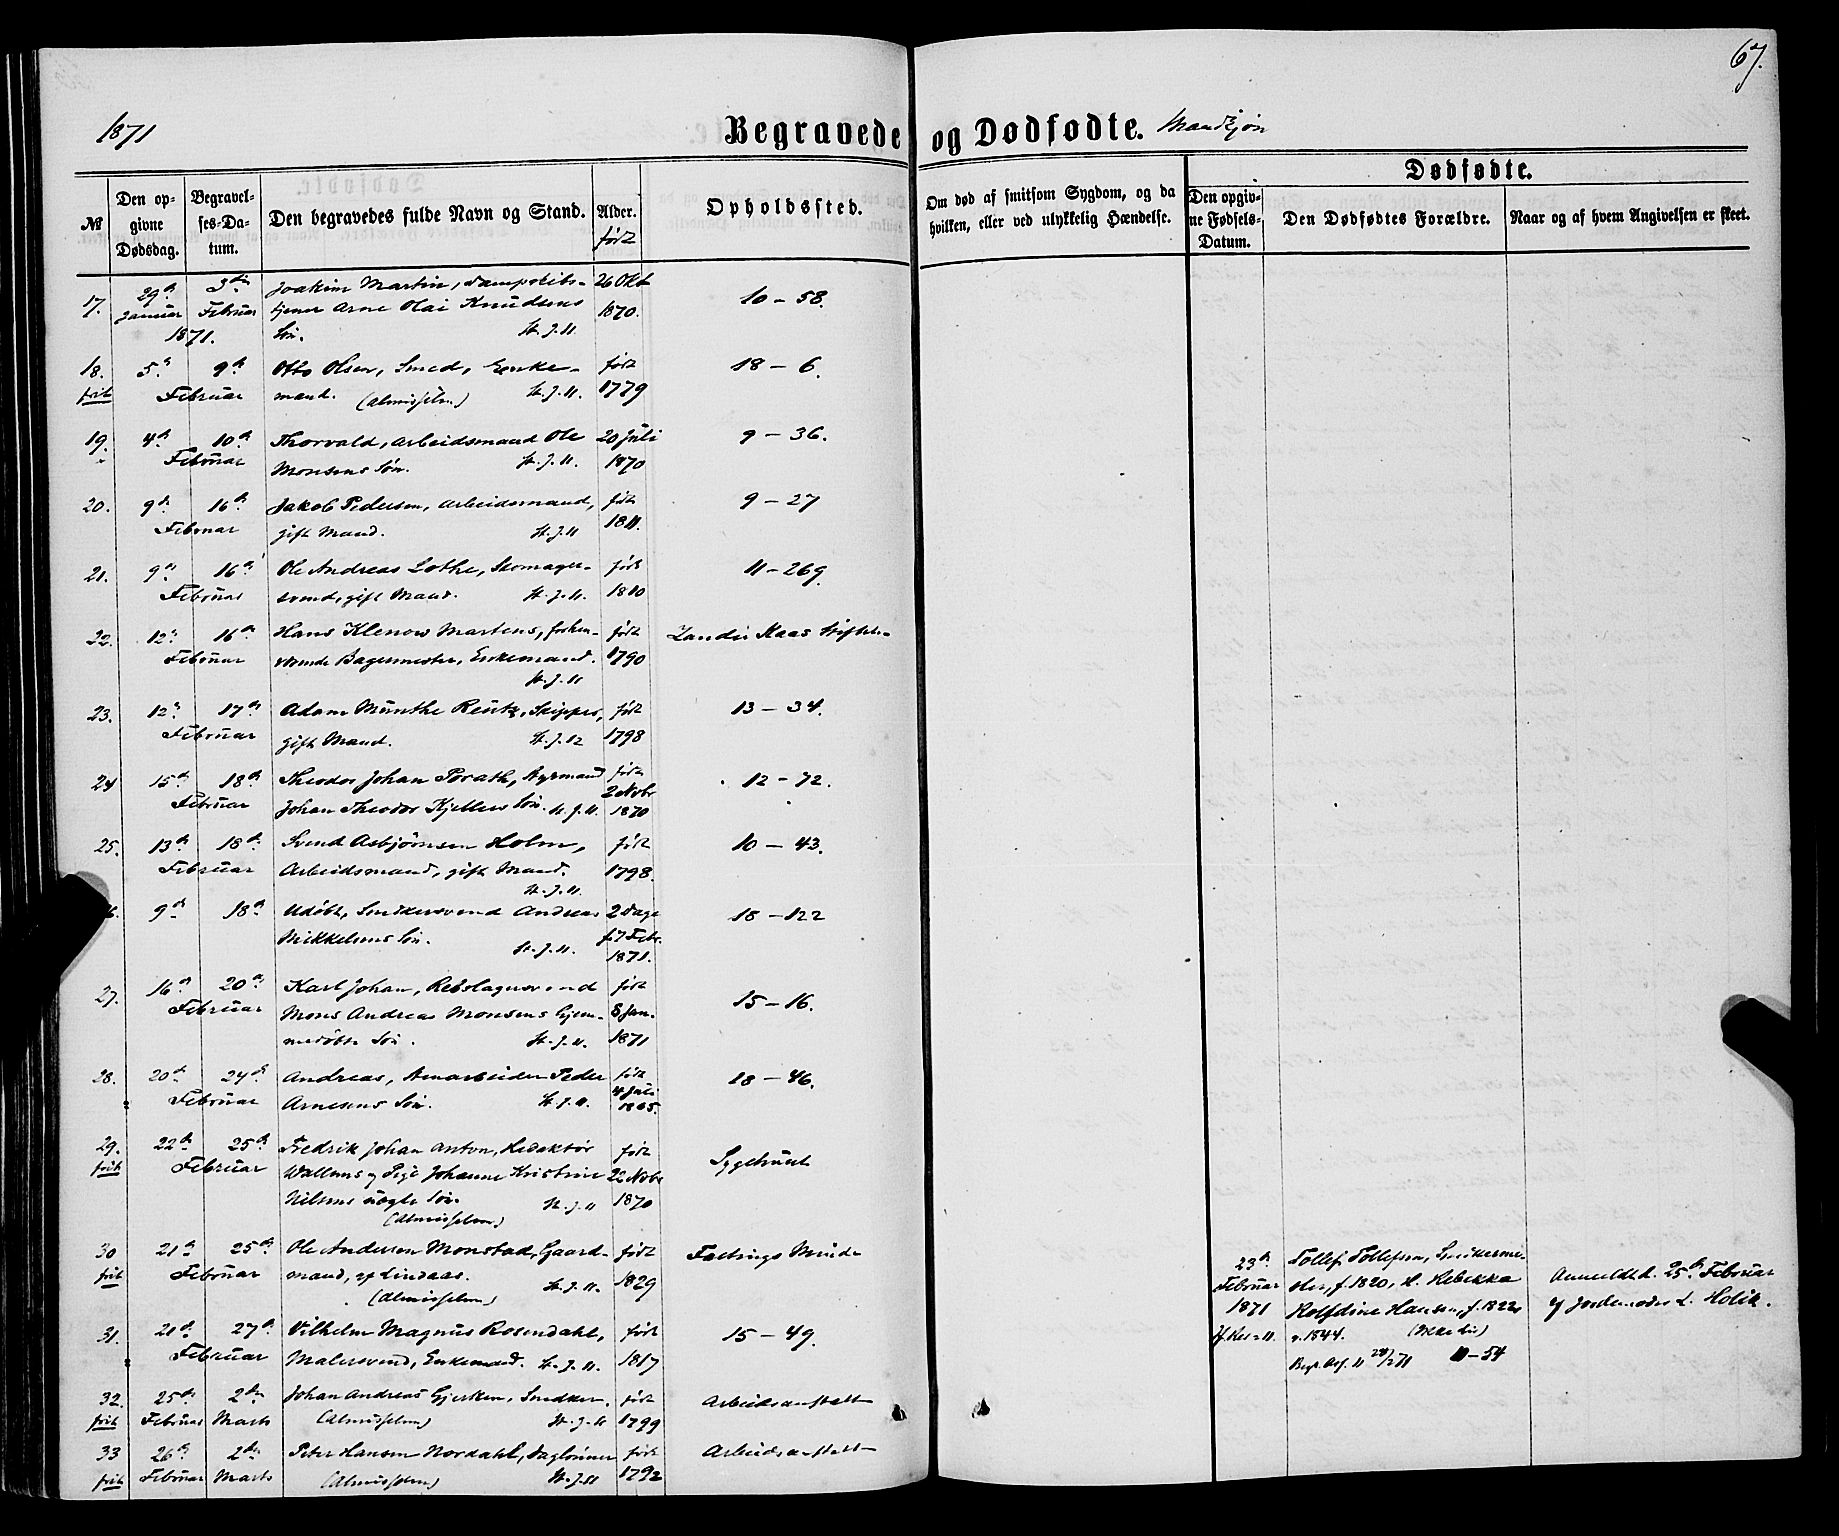 67.
1871
Begravede og Dødfødte. Mandkjøn
№
Den opgivne Dødsdag.
Begravelses-Datum.
Den begravedes fulde Navn og Stand.
Alder.
født
Opholdssted.
Om død af smitsom Sygdom, og da hvilken, eller ved ulykkelig Hændelse.
Dødfødte.
Den opgivne Fødsels-Datum.
Den Dødfødtes Forældre.
Naar og af hvem Angivelsen er skeet.
17. 29de 3die Joakim Martin, Dampskibs- 26 Okt
Januar Februar tjener Arne Olai Knudsens 1870. 10 – 58.
1871. Søn. St. J. 11.
18. 5te 9de Otto Olsen, Smed, Enke- født 18 – 6.
frit Februar mand. (Almisselem) St. J. 11. 1779
19. 4de 10de Thorvald, Arbeidsmand Ole 20 Juli 9 – 36.
Februar Monsens Søn. St. J. 11. 1870
20. 9de 16de Jakob Pedersen, Arbeidsmand, født 9 – 27
Februar gift Mand. St. J. 11 1811.
21. 9de 16de Ole Andreas Lothe, Skomager- født 11 – 269.
Februar svend, gift Mand. St. J. 11. 1810
22. 12te 16de Hans Klenow Martens, forhen- født Zander Kaas Stiftelse
Februar værende Bagermester, Enkemand. 1790
St. J. 11
23. 12te 17de Adam Munthe Reutz, Skipper, født 13 – 34.
Februar gift Mand. St. J. 12 1798
24 15de 18de Theodor Johan Porath, Styrmand født 12 – 72.
2 Novbr
Februar Johan Theodor Kjellers Søn. St. J. 11. 1870
25. 13de 18de Svend Asbjørnsen Holm, født 10 – 43.
Februar Arbeidsmand, gift Mand. 1798.
St. J. 11.
6. 9de 18de Udøbt, Snedkersvend Andreas 2 Dage 18 – 122
Mikkelsens Søn. St. J. 11. f. 7 Febr.
1871.
27. 16de 20de Karl Johan, Rebslagersvend født 15 – 16.
Februar Mons Andreas Monsens Hjem- 8 Jan.
medøbte Søn. St. J. 11. 1871
28. 20de 24de Andreas, Arbeider Peder født 18 – 46.
4 Juli
Februar Arnesens Søn. St. J. 11. 1865.
29. 22de 25de Fredrik Johan Anton, Redaktør født Sygehuset
frit Februar Wallems og Pige Johanne Kristine 22 Novbr
Nilsens uægte Søn. St. J. 11 1870
(Almisselem)
30 21de 25de Ole Andersen Monstad, Gaard- født Fattiges Minde
frit Februar mand, af Lindaas. St. J. 11. 1829
(Almisselem)
31. 21de 27de Vilhelm Magnus Rosendahl, født 15 – 49.
Februar Malersvend, Enkemand. St. J. 11. 1817
32. 25de 2den Johan Andreas Gjerken, Snedker. født Arbeidsanstalt
frit Februar Marts (Almisselem) St. J. 11 1799
33 26de 2den Peter Hansen Nordahl, Daglønner født Arbeidsanstalt
frit Februar Marts (Almisselem) St. J. 11 1792
23de Tollef Tollefsen, Snedkerme-
Februar ster, f. 1820, H. Rebekka
1871 Rolfdine Hansen, f. 1822,
v. 1844.
11 – 54
Anmeldt d. 25de Februar
af Jordemoder L. Holck.